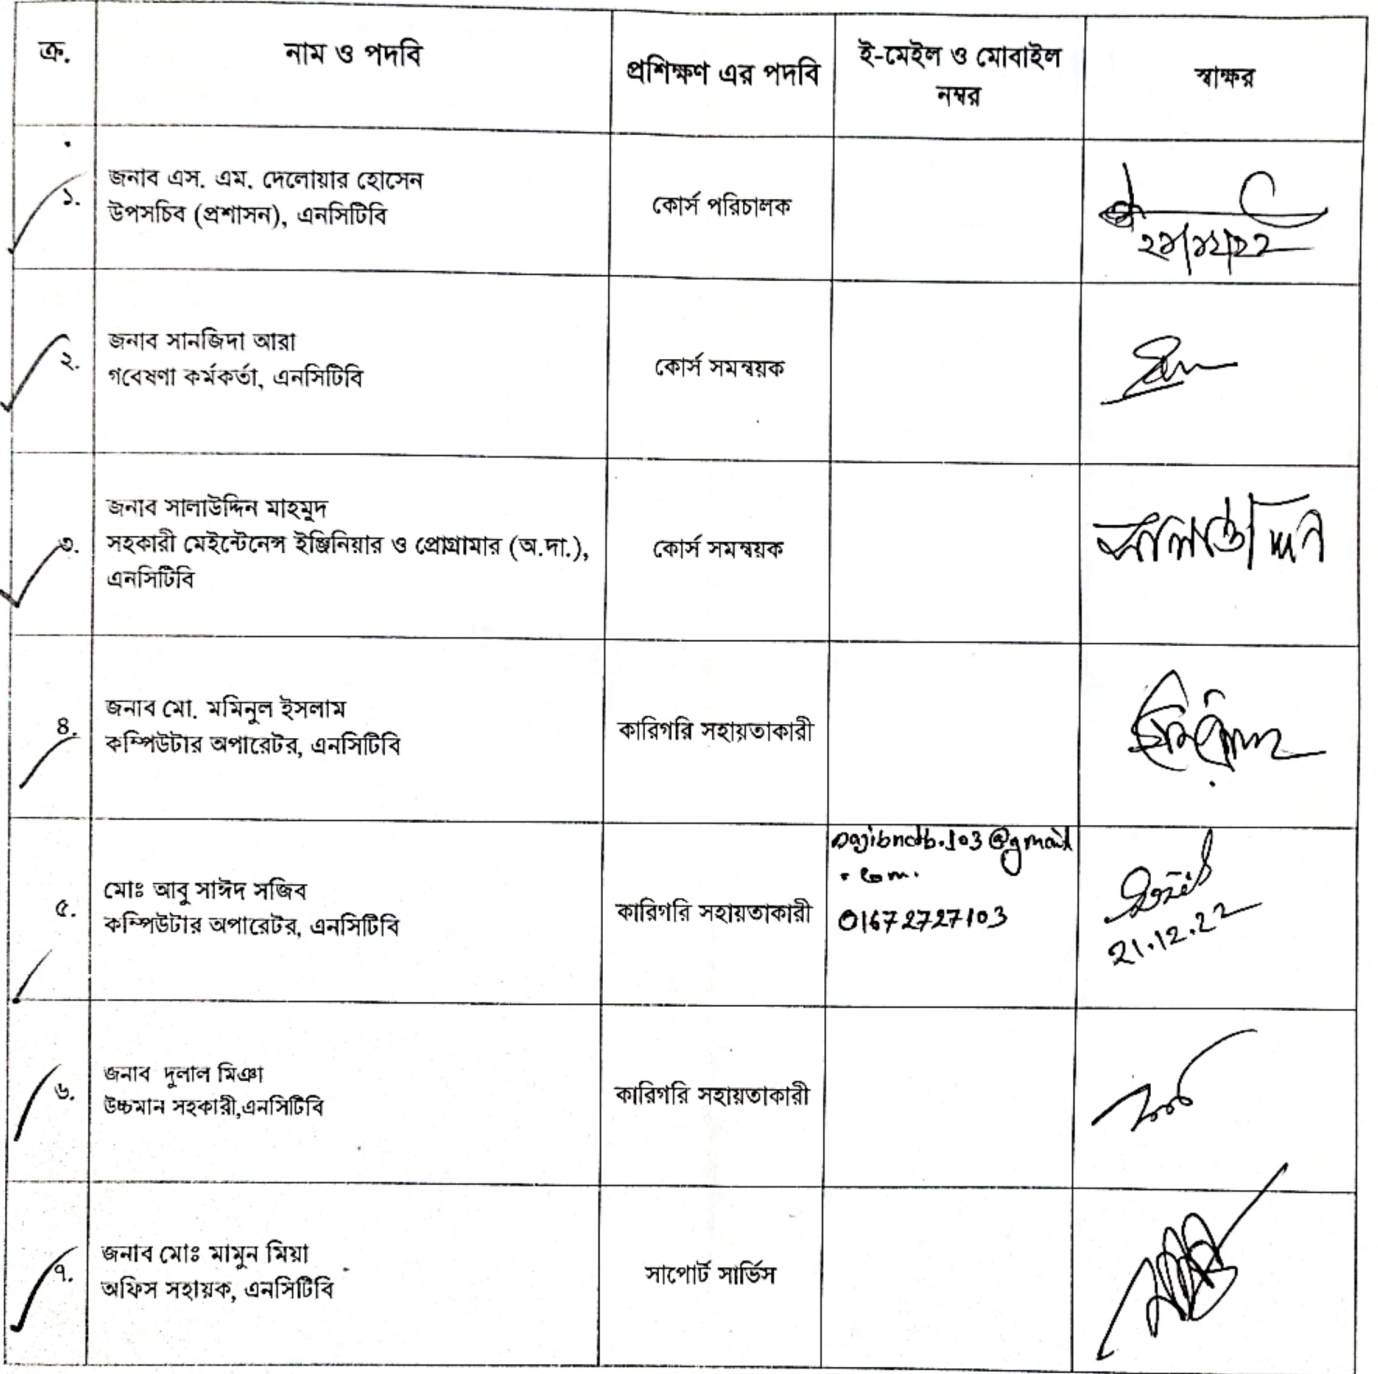 ক্র.
নাম ও পদবি
প্রশিক্ষণ এর পদবি
ই-মেইল ও মোবাইল
নম্বর
স্বাক্ষর
১.
জনাব এস. এম. দেলোয়ার হোসেন
উপসচিব (প্রশাসন), এনসিটিবি
কোর্স পরিচালক
২১/১২/২২
২.
জনাব সানজিদা আরা
গবেষণা কর্মকর্তা, এনসিটিবি
কোর্স সমন্বয়ক
৩.
জনাব সালাউদ্দিন মাহমুদ
সহকারী মেইন্টেনেন্স ইঞ্জিনিয়ার ও প্রোগ্রামার (অ.দা.),
এনসিটিবি
কোর্স সমন্বয়ক
৪.
জনাব মো. মমিনুল ইসলাম
কম্পিউটার অপারেটর, এনসিটিবি
কারিগরি সহায়তাকারী
৫.
মোঃ আবু সাঈদ সজিব
কম্পিউটার অপারেটর, এনসিটিবি
কারিগরি সহায়তাকারী
sajibnctb.103@gmail
.com.
01672727103
21.12.22
৬.
জনাব দুলাল মিঞা
উচ্চমান সহকারী,এনসিটিবি
কারিগরি সহায়তাকারী
৭.
জনাব মোঃ মামুন মিয়া
অফিস সহায়ক, এনসিটিবি
সাপোর্ট সার্ভিস